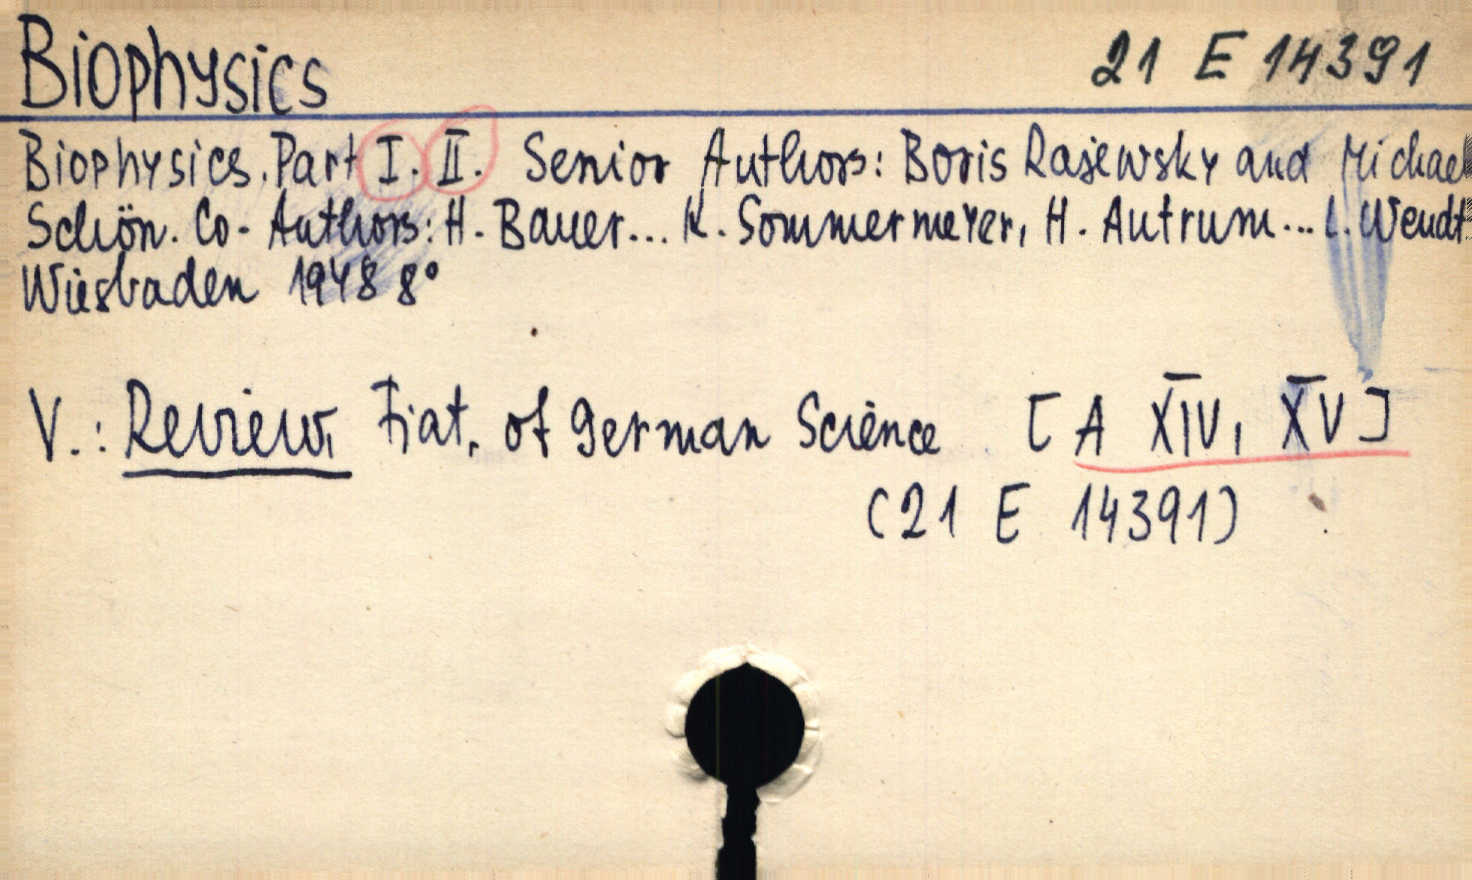 Biophysics
21 E 14391
Biophysics. Part I. II. Senior Authors: Boris Rajewsky and Michael
Schön. Co-Authors: H. Bauer... K. Sommermeyer, H. Autrum... L. Wendt
Wiesbaden 1948 8°
V.: Review, Fiat, of german Science [A XIV, XV]
(21 E 14391)